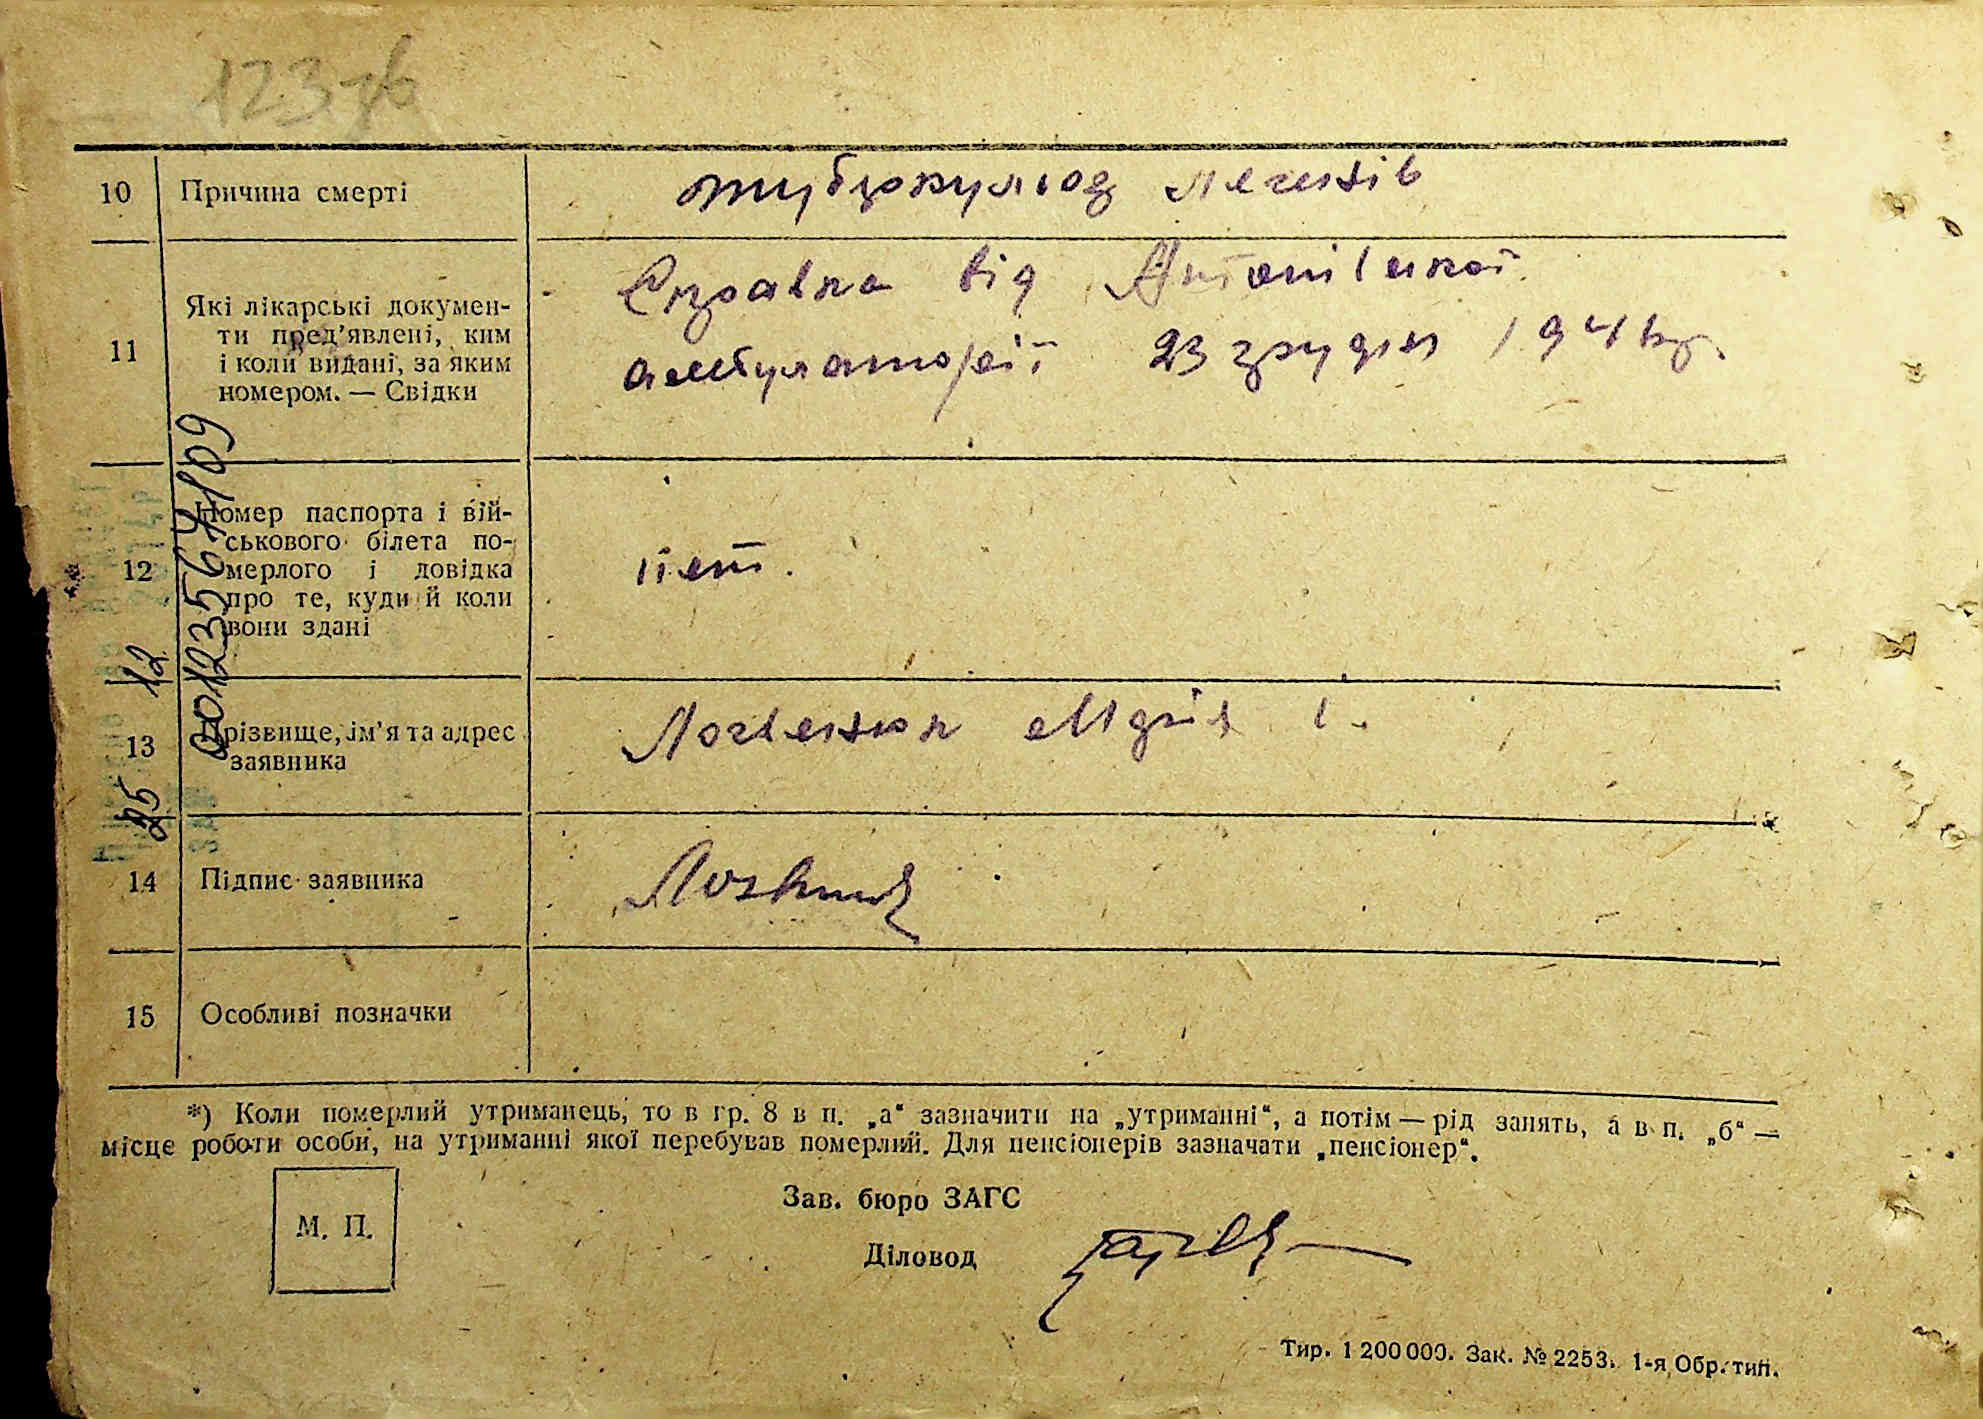 123
10 Причина смерті
туберкульоз легенів
11 Які лікарські докумен-
ти пред’явлені, ким
і коли видані, за яким
номером. — Свідки
Справка від
амбулаторії 23 грудня 194
12 Номер паспорта і вій-
ськового білета по-
мерлого і довідка
про те, куди й коли
вони здані
нет.
13 Прізвище, ім’я та адрес
заявника
14 Підпис заявника
15 Особливі позначки
25 12
*) Коли померлий утриманець, то в гр. 8 в п. „а“ зазначити на „утриманні“, а потім — рід занять, а в п. „б“ —
місце роботи особи, на утриманні якої перебував померлий. Для пенсіонерів зазначати „пенсіонер“.
М. П.
Зав. бюро ЗАГС
Діловод
Тир. 1 200 000. Зак. № 2253. 1-я Обр. тип.